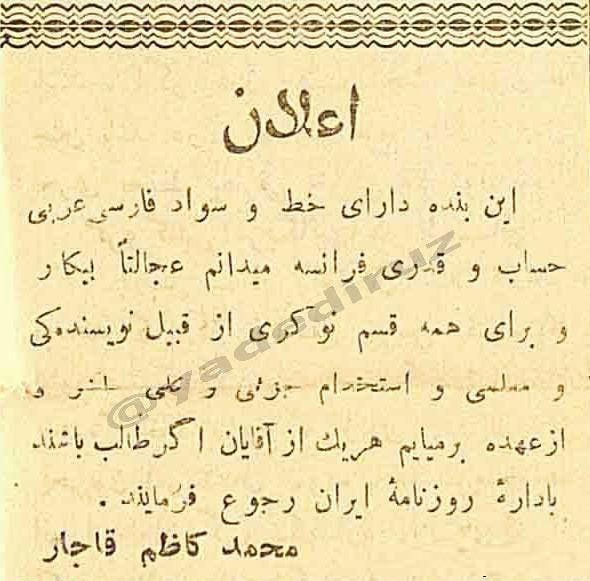 اعلان
این بنده دارای خط و سواد فارسی عربی
حساب و قدری فرانسه میدانم عجالتاً بیکار
و برای همه قسم نوکری از قبیل نویسندگی
و معلمی و استخدام جزئی و کلی حاضر و
از عهده برمیایم هریك از آقایان اگر طالب باشند
بادارهٔ روزنامهٔ ایران رجوع فرمایند .
محمد کاظم قاجار
@yadediruz